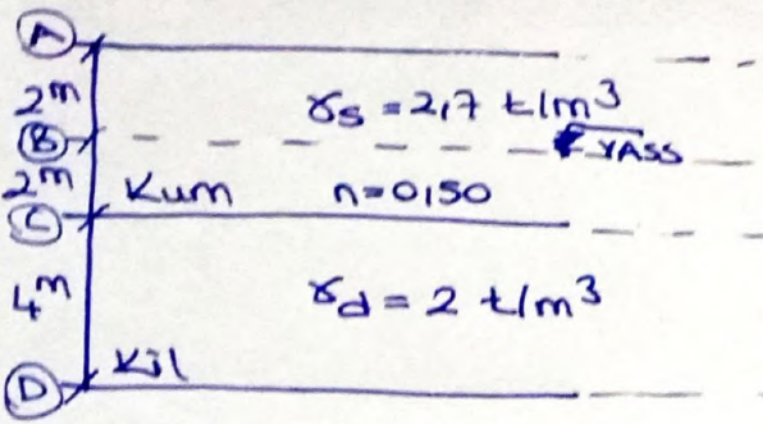 A
2m γs = 2,7 t/m³
B YASS
2m Kum n=0,50
C
4m γd = 2 t/m³
D Kil